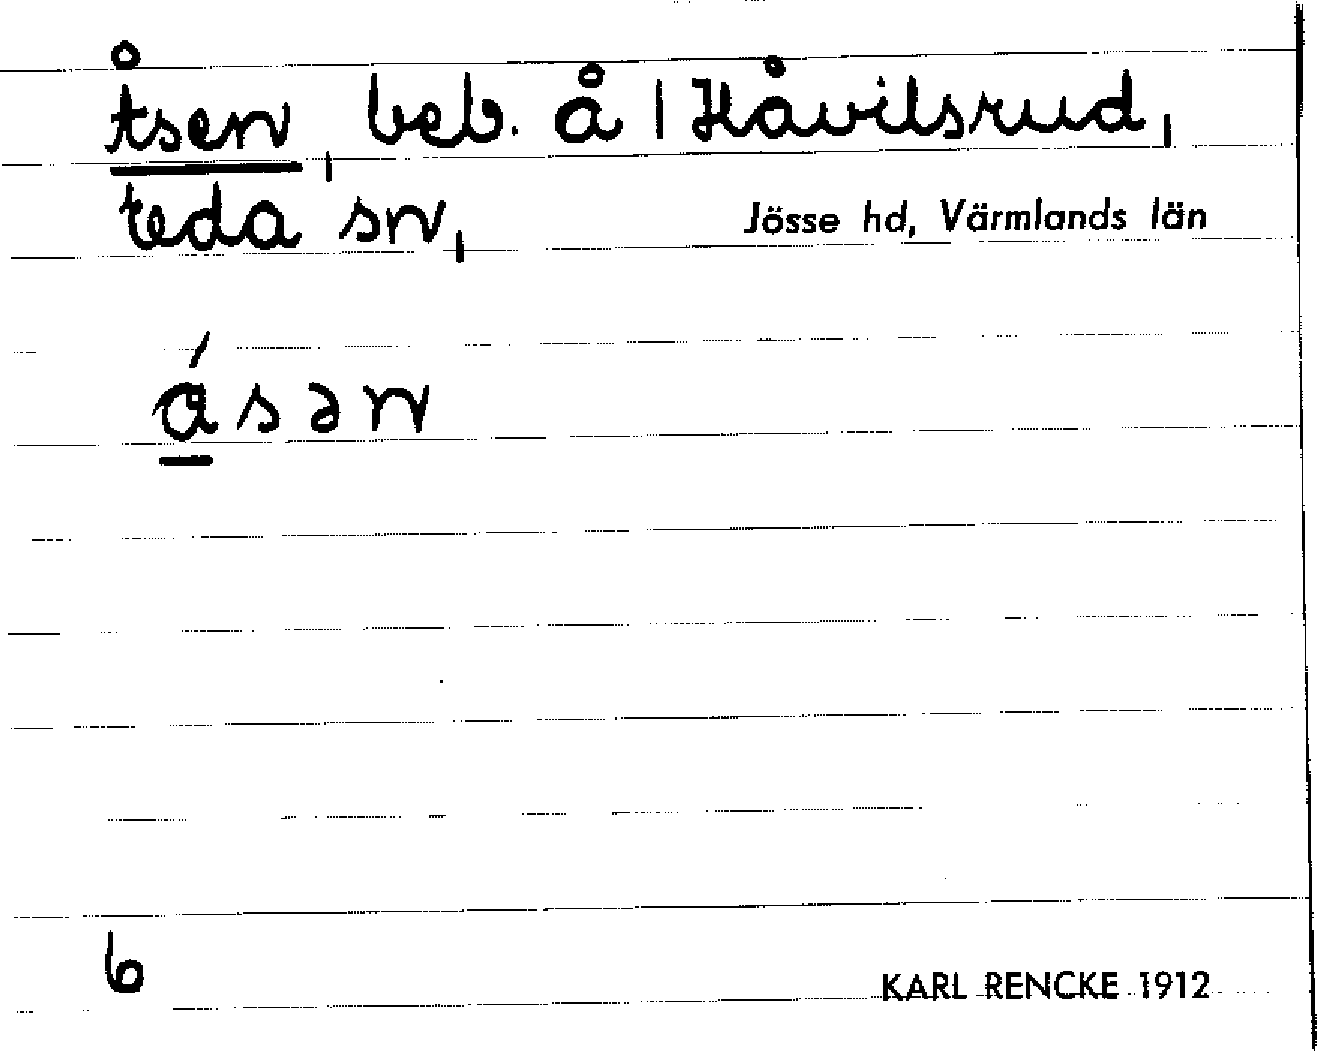 Åsen, beb. å 1 Håvilsrud,
Eda sn, Jösse hd, Värmlands län
ásən
6
KARL RENCKE 1912